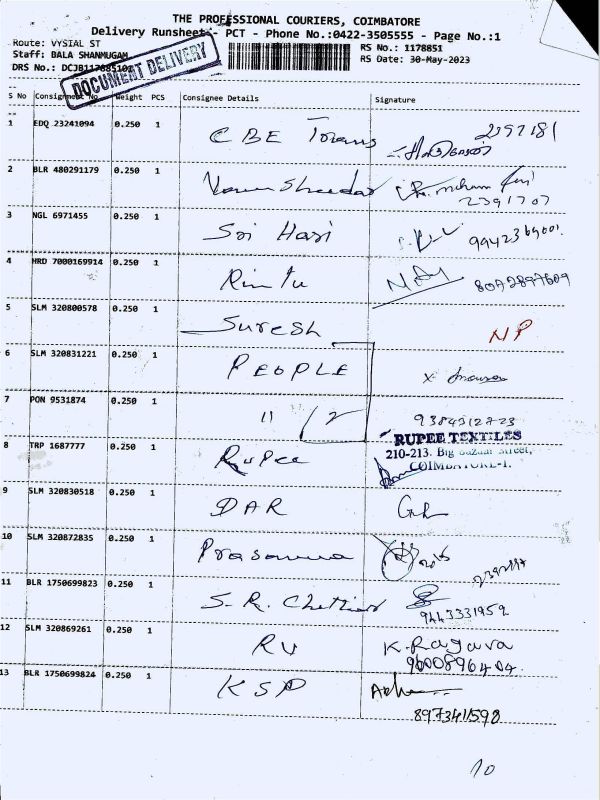 THE PROFESSIONAL COURIERS, COIMBATORE
Delivery Runsheet - PCT - Phone No.:0422-3505555 - Page No.:1
Route: VYSIAL ST
RS No.: 1178851
Staff: BALA SHANMUGAM
RS Date: 30-May-2023
DRS No.:
DOCUMENT DELIVERY
S No Consignment No Weight PCS Consignee Details Signature
1 EDQ 23241094 0.250 1 CBE 2397181
2 BLR 480291179 0.250 1
2391707
3 NGL 6971455 0.250 1 Sri Hari
4 HRD 7000169914 0.250 1 Rintu 8072897609
5 SLM 320800578 0.250 1 Suresh NP
6 SLM 320831221 0.250 1 PEOPLE
7 PON 9531874 0.250 1 11 2
8 TRP 1687777 0.250 1 Rupee
RUPEE TEXTILES
210-213, Big Bazaar Street,
COIMBATORE-1.
9 SLM 320830518 0.250 1 DAR
10 SLM 320872835 0.250 1 Prasanna
11 BLR 1750699823 0.250 1 S.R. Chettiar
9443331959
12 SLM 320869261 0.250 1 RV K.Ragava
9600896404
13 BLR 1750699824 0.250 1 KSP
8973411598
10